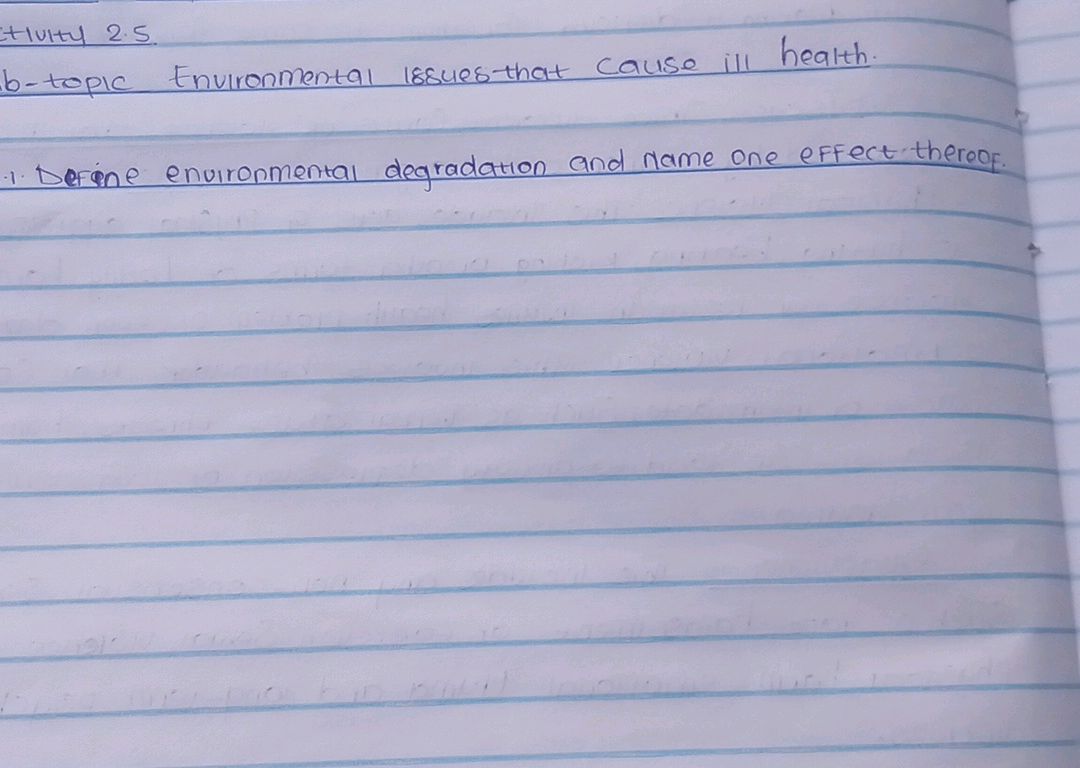 ctivity 2.5.
b-topic Environmental issues that cause ill health.
.1. Define environmental degradation and name one effect thereof.